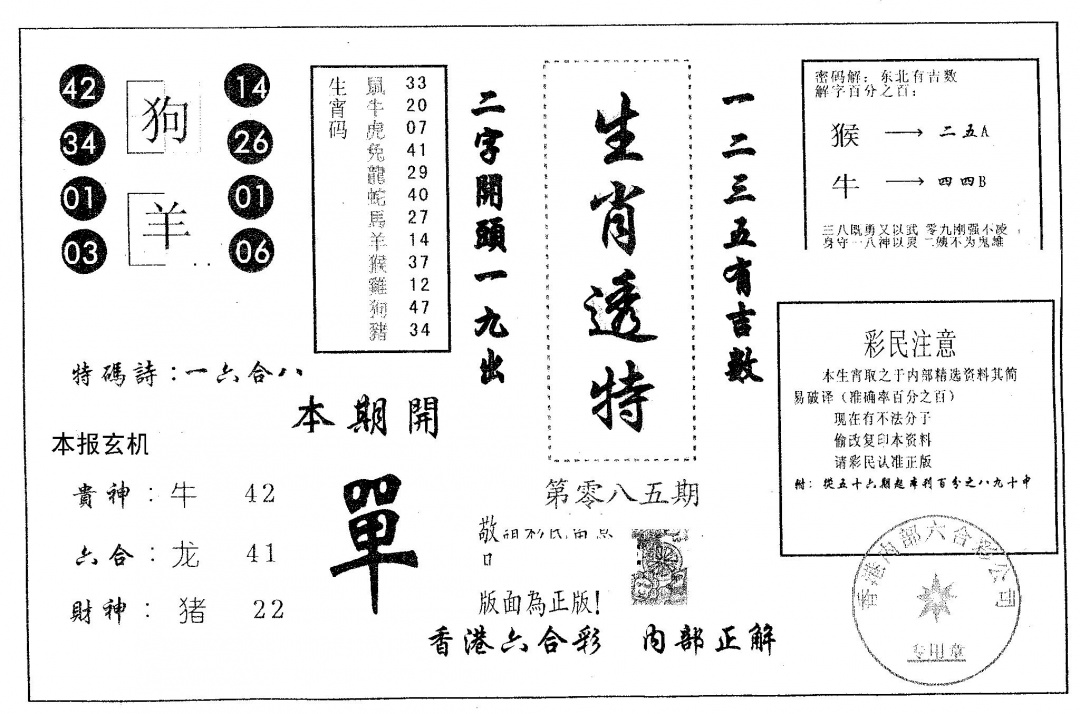 42
34
01
03
狗
羊
14
26
01
06
生宵码
鼠 33
牛 20
虎 07
兔 41
龍 29
蛇 40
馬 27
羊 14
猴 37
雞 12
狗 47
豬 34
二字開頭一九出
生肖透特
一二三五有吉數
密码解：东北有吉数
解字百分之百：
猴 → 二五A
牛 → 四四B
三八既勇又以武 零九刚强不凌
身守一八神以灵 二姨不为鬼雄
特碼詩：一六合八
本期開
單
本报玄机
貴神：牛 42
六合：龙 41
財神：猪 22
第零八五期
敬
版面為正版！
香港六合彩 内部正解
彩民注意
本生宵取之于内部精选资料其简
易破译（准确率百分之百）
现在有不法分子
偷改复印本资料
请彩民认准正版
附：從五十六期起准利百分之八九十中
香港内部六合彩公司
专用章